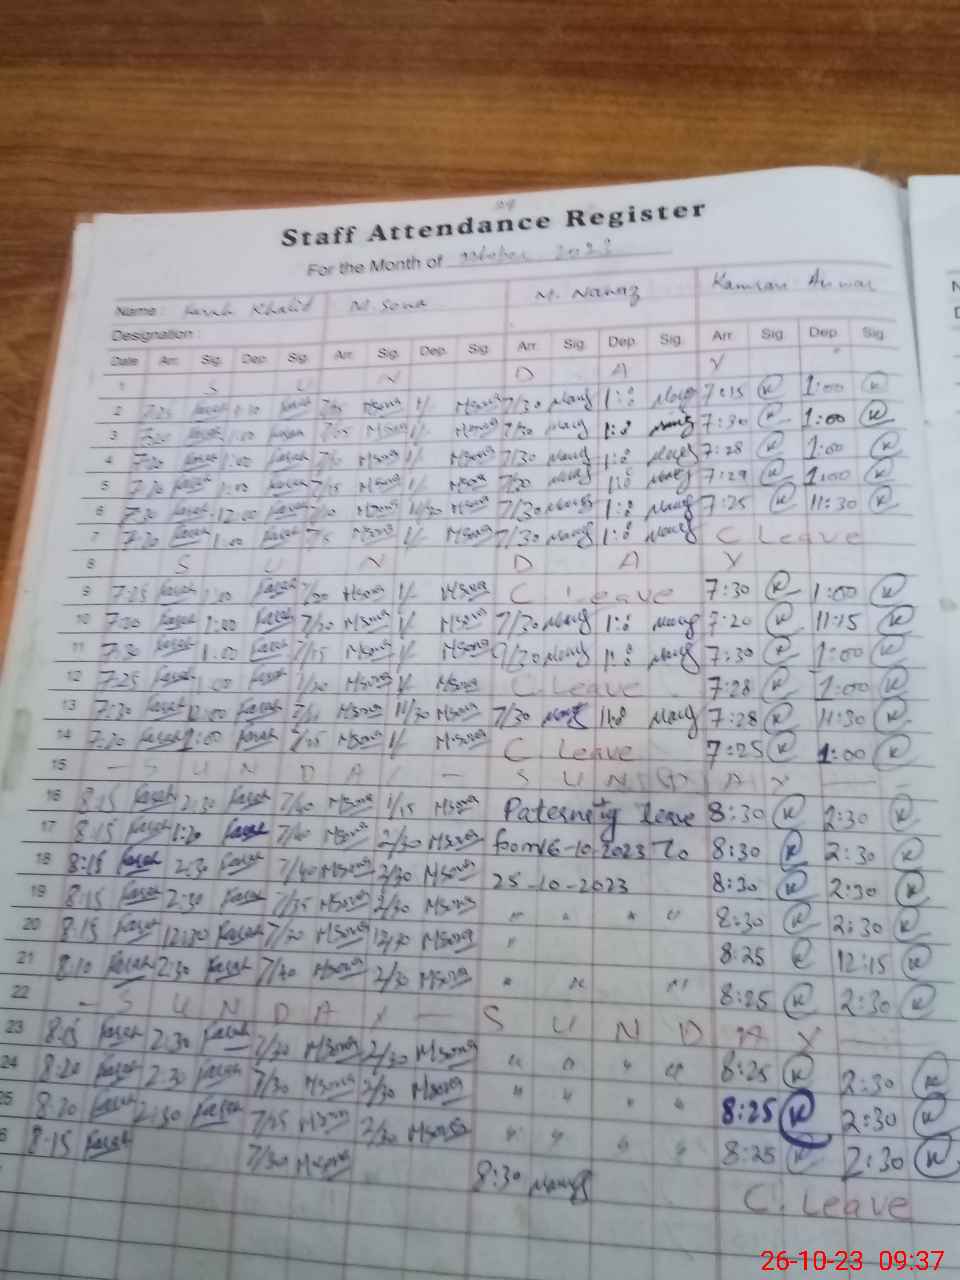 Staff Attendance Register
For the Month of October 2023
Name : Farah Khalid M. Sona M. Nawaz Kamran Anwar
Designation :
Date Arr. Sig. Dep. Sig. Arr. Sig. Dep. Sig. Arr. Sig. Dep. Sig. Arr. Sig. Dep. Sig.
1 S U N D A Y
2 7:25 Farah Farah MSona 1/- MSona 7/30 Nawaz 1:0 Nawaz 7:15 K 1:00 K
3 7:20 Farah 1:00 Farah MSona 1/- MSona 7/30 Nawaz 1:0 Nawaz 7:30 K 1:00 K
4 7:20 Farah 1:00 Farah MSona 1/- MSona 7/30 Nawaz 1:0 Nawaz 7:28 K 1:00 K
5 7:20 Farah 1:00 Farah 7/15 MSona 1/- MSona 7/30 Nawaz Nawaz 7:29 K 1:00 K
6 7:20 Farah 12:00 Farah MSona MSona 7/30 Nawaz 1:0 Nawaz 7:25 K 11:30 K
7 7:20 Farah 1:00 Farah MSona 1/- MSona 7/30 Nawaz 1:0 Nawaz C Leave
8 S U N D A Y
9 7:25 Farah 1:00 Farah MSona 1/- MSona C Leave 7:30 K 1:00 K
10 7:20 Farah 1:00 Farah 7/30 MSona 1/- MSona 7/30 Nawaz 1:0 Nawaz 7:20 K 11:15 K
11 7:30 Farah 1:00 Farah MSona 1/- MSona 7/30 Nawaz Nawaz 7:30 K 1:00 K
12 7:25 Farah 1:00 Farah MSona 1/- MSona C. Leave 7:28 K 1:00 K
13 7:30 Farah 12:00 Farah MSona 11/30 MSona 7/30 Nawaz Nawaz 7:28 K 11:30 K
14 7:20 Farah 1:00 Farah MSona 1/- MSona C Leave 7:25 K 1:00 K
15 - S U N D A Y - S U N D A Y
16 8:15 Farah 2:30 Farah 7/40 MSona 1/15 MSona Paternity leave 8:30 K 2:30 K
17 8:15 Farah Farah 7/40 MSona 2/30 MSona from 16-10-2023 To 8:30 K 2:30 K
18 8:15 Farah 2:30 Farah 7/40 MSona 2/30 MSona 25-10-2023 8:30 K 2:30 K
19 8:15 Farah 2:30 Farah 7/35 MSona 2/30 MSona " " " " 8:30 K 2:30 K
20 8:15 Farah 12:30 Farah 7/30 MSona 12/30 MSona " 8:25 K 12:15 K
21 8:10 Farah 2:30 Farah 7/30 MSona 2/30 MSona " " " 8:25 K 2:30 K
22 - S U N D A Y - S U N D A Y
23 8:15 Farah 2:30 Farah 7/30 MSona 2/30 MSona " " " " 8:25 K 2:30 K
24 8:20 Farah 2:30 Farah 7/30 MSona 2/30 MSona " " " " 8:25 K 2:30 K
25 8:20 Farah 2:30 Farah 7/25 MSona 2/30 MSona " " " " 8:25 K 2:30 K
8:15 Farah 7/30 MSona 8:30 Nawaz C. Leave
26-10-23 09:37